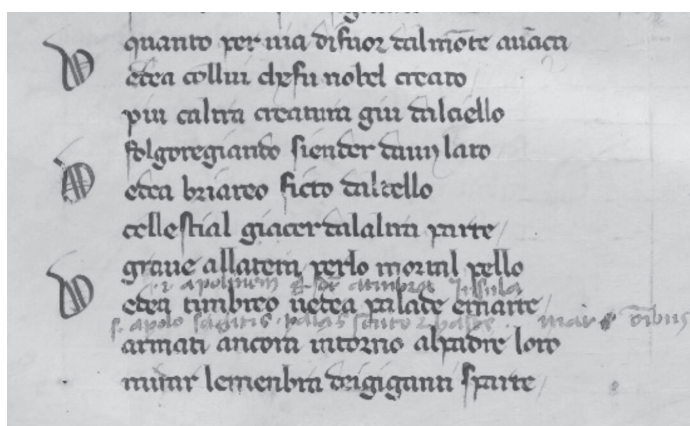 quanto per uia difuor dalmōte auāca
U edea collui chefu nobel creato
piu caltra creatura giu dalciello
folgoregiando siender daun lato
U edea briareo ficto daltello
cellestial giacer dalaltra parte
graue allatera perlo mortal gello
.i. apolinem
U edea timbreo uedea palade emarte
s. apolo sagitis. palas scuto
armati ancora intorno alpadre loro
mirar lemenbra degiganti sparte